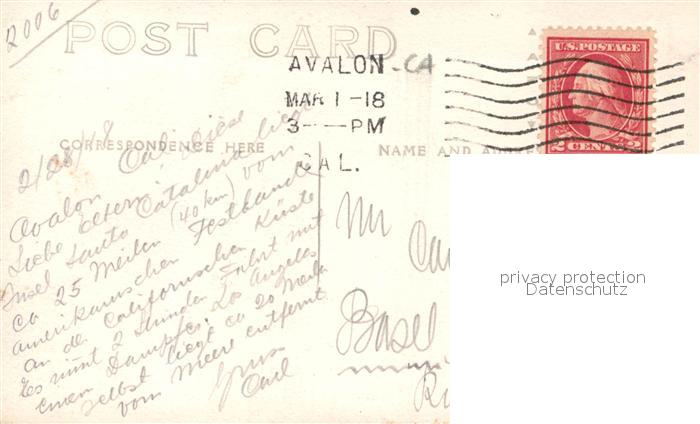 2006
POST CARD
AVALON - CA
MAR 1-18
3 — PM
CAL.
U.S. POSTAGE
2 CENTS 2
CORRESPONDENCE HERE
NAME AND ADDRE
2/28/18
Avalon Cal. Diese
Liebe Eltern!
Insel Santa Catalina liegt
ca 25 Meilen (40 km) vom
amerikanischen Festlande
an der Californischen Küste
Es nimt 2 Stunden Fahrt mit
einem Dampfer. Los Angeles
selbst liegt ca 20 Meilen
vom Meere entfernt
Gruss
Carl
Mr Ca
Basel
privacy protection
Datenschutz